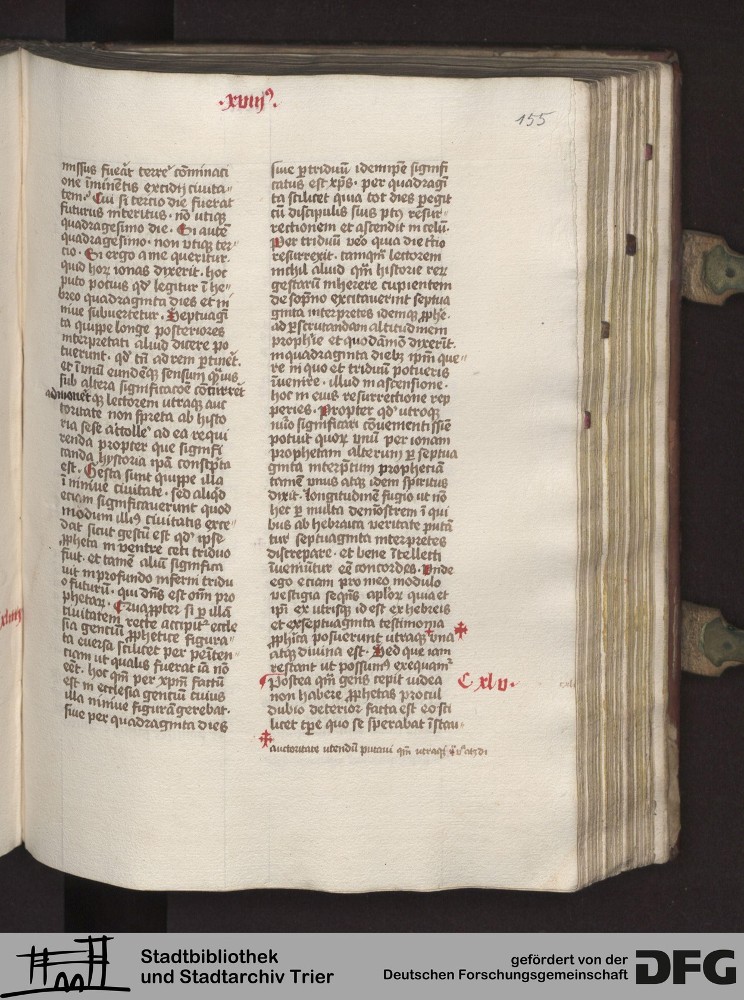 ·xviij9·
155
missus fuerat terrē cōminaci
one īminētis excidij ciuita-
tem· Cui si tercio die fuerat
futurus interitus· nō utiqȝ
quadragesimo die· Si autē
quadragesimo· non vtiqȝ ter-
cio· Si ergo a me queritur
quid hoꝝ ionas dixerit· hoc
puto pocius qd' legitur ī he-
breo quadraginta dies et ni
niue subuertetur· Septuagī
ta quippe longe posteriores
interpretati aliud dicere po
tuerunt· qd' tn̄ ad rem ꝑtinēt·
et ī unū eundēqȝ sensum quis
sub altera significacōe cōcurrēt
admonēt qȝ lectorem utraqȝ auc
toritate non spreta ab histo
ria sese attolle' ad ea requi
renda propter que signifi
canda hystoria ipā conscpta
est· Gesta sunt quippe illa
ī niniue ciuitate· sed aliqd
eciam significauerunt quod
modum illi9 ciuitatis exce-
dat sicut gestū est qd' ipse
ꝓpheta in ventre ceti triduo
fuit· et tamē aliū significa
uit in profundo inferni tridu
o futurū· qui dn̄s est oīm pro
phetaꝝ· Cuaꝓpter si ꝑ illā
ciuitatem recte accipit' eccle
sia genciū ꝓphetice figura-
ta euersa scilicet per peniten-
ciam ut qualis fuerat iā nō
eēt· hoc qm̄ per xpm̄ factū
est in ecclesia genciū cuius
illa niniue figurā gerebat·
siue per quadraginta dies
siue ꝑ triduū idemipse signifi
catus est xp̄s· per quadragī
ta scilicet quia tot dies ꝑegit
cū discipulis suis pt9 resur-
rectionem et ascendit in celū·
Per triduū vero quia die tercio
resurrexit· tamqm̄ lectorem
nichil aliud qm̄ historie reꝝ
gestarū inherere cupientem
de sopno excitauerint septua
ginta interpretes idemqȝ ꝓphe·
ad ꝑscrutandam altitudinem
prophīe et quodāmō dixerīt·
in quadraginta diebȝ ipm̄ que-
re in quo et triduū potueris
īuenire· illud in ascensione·
hoc in eius resurrectione rep
peries· Propter qd' utroqȝ
nūo significari cōuenientissīe
potuit quoꝝ unū per ionam
prophetam alterum ꝑ septua
ginta interptum propheciā
tamē vnus atqȝ idem spiritus
dixit· Longitudinē fugio ut nō
hec ꝑ multa demōstrem ī qui
bus ab hebraica veritate putā
tur septuaginta interpretes
discrepare· et bene ītellecti
īueniūtur eē concordes· Unde
ego eciam pro meo modulo
vestigia seqn̄s aplōꝝ quia et
ipī ex utrisqȝ id est ex hebreis
et ex septuaginta testimonia
ꝓphīca posuerunt utraqȝ una
atqȝ diuina est· Sed que iam
restant ut possum9 exequam'
Postea qm̄ gens cepit iudea
non habere ꝓphetas procul
dubio deterior facta est eo sci
licet tp̄e quo se sperabat īstau-
C xlv·
auctoritate utendū putaui qm̄ utraqȝ
Stadtbibliothek
und Stadtarchiv Trier
gefördert von der
Deutschen Forschungsgemeinschaft
DFG